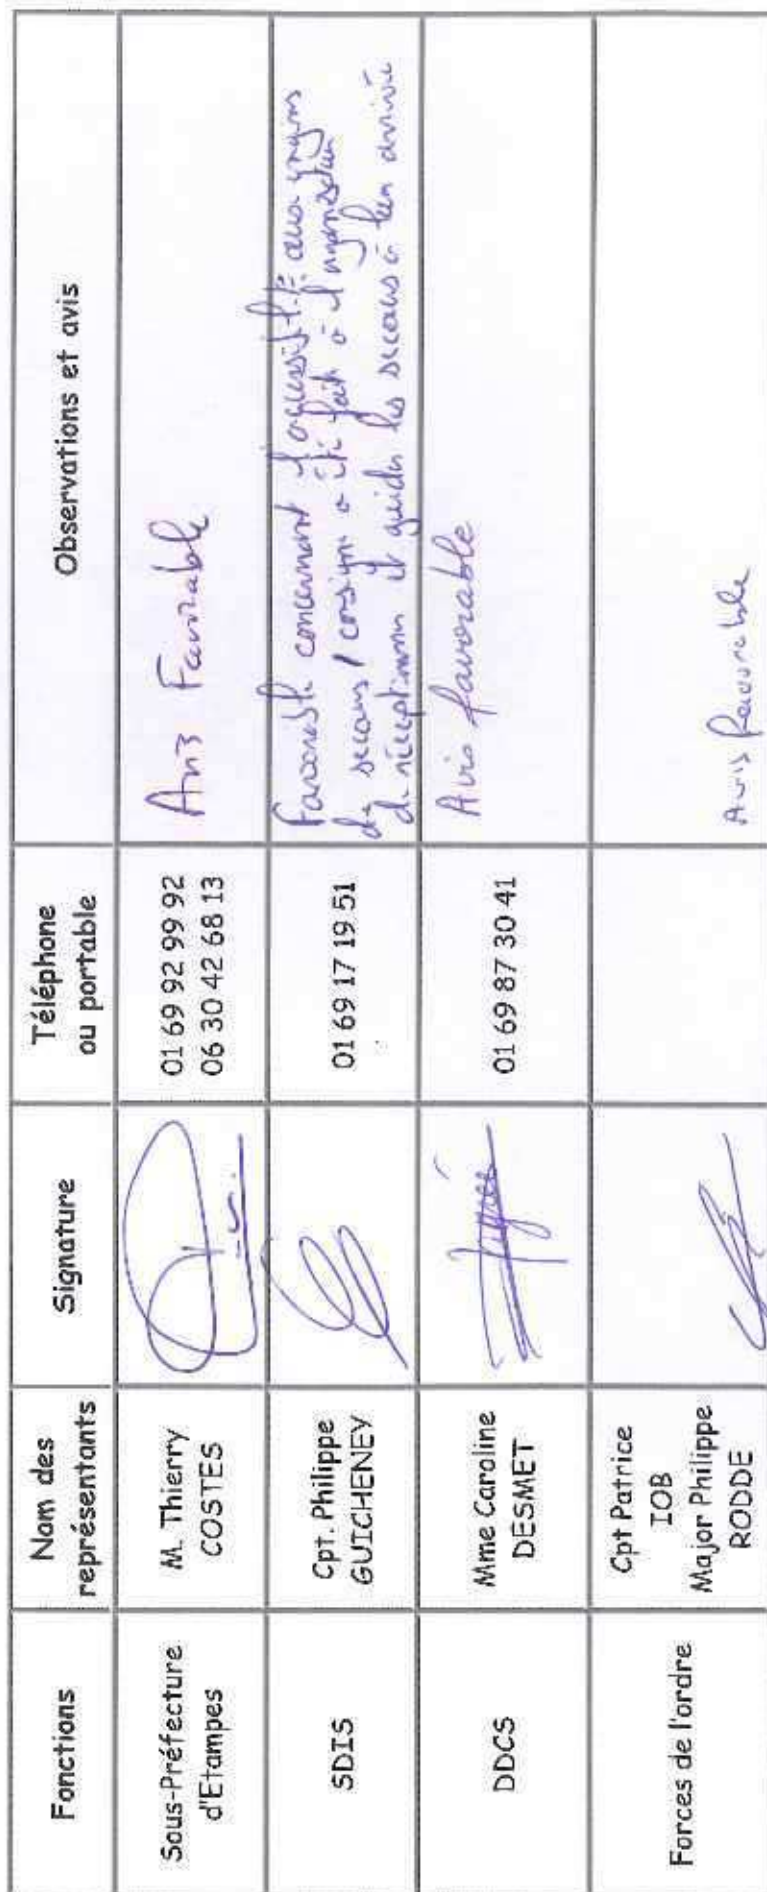 Fonctions
Nom des
représentants
Signature
Téléphone
ou portable
Observations et avis
Sous-Préfecture
d'Etampes
M. Thierry
COSTES
01 69 92 99 92
06 30 42 68 13
Avis Favorable
SDIS
Cpt. Philippe
GUICHENEY
01 69 17 19 51
Favorable concernant l'accessibilité aux engins
de secours, consigne a été fait à l'organisateur
de réceptionner et guider les secours à leur arrivée
DDCS
Mme Caroline
DESMET
01 69 87 30 41
Avis favorable
Forces de l'ordre
Cpt Patrice
IOB
Major Philippe
RODDE
Avis favorable